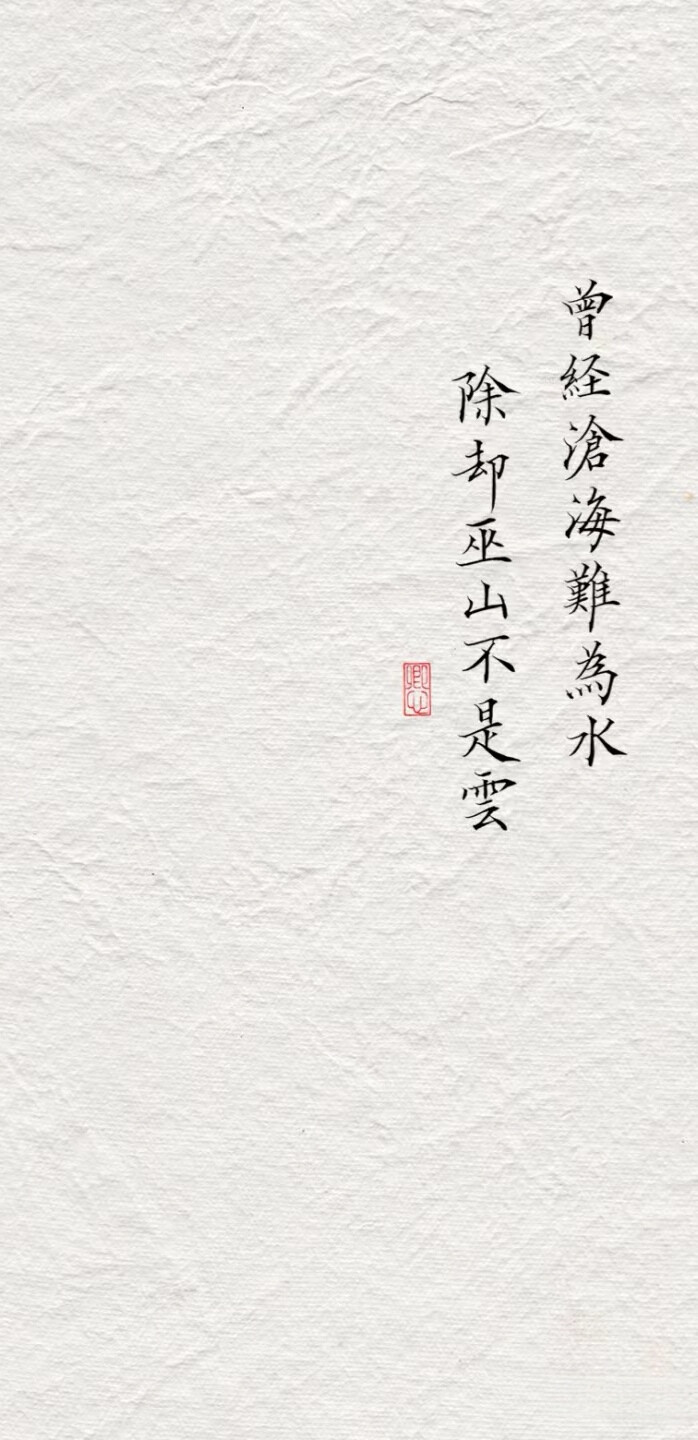 曾経滄海難為水
除却巫山不是雲